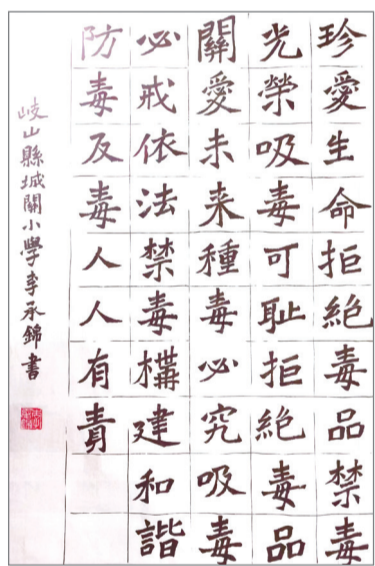 珍愛生命拒絕毒品禁毒
光榮吸毒可耻拒絕毒品
關愛未来種毒必究吸毒
必戒依法禁毒構建和諧
防毒反毒人人有責
岐山縣城關小學李承錦書